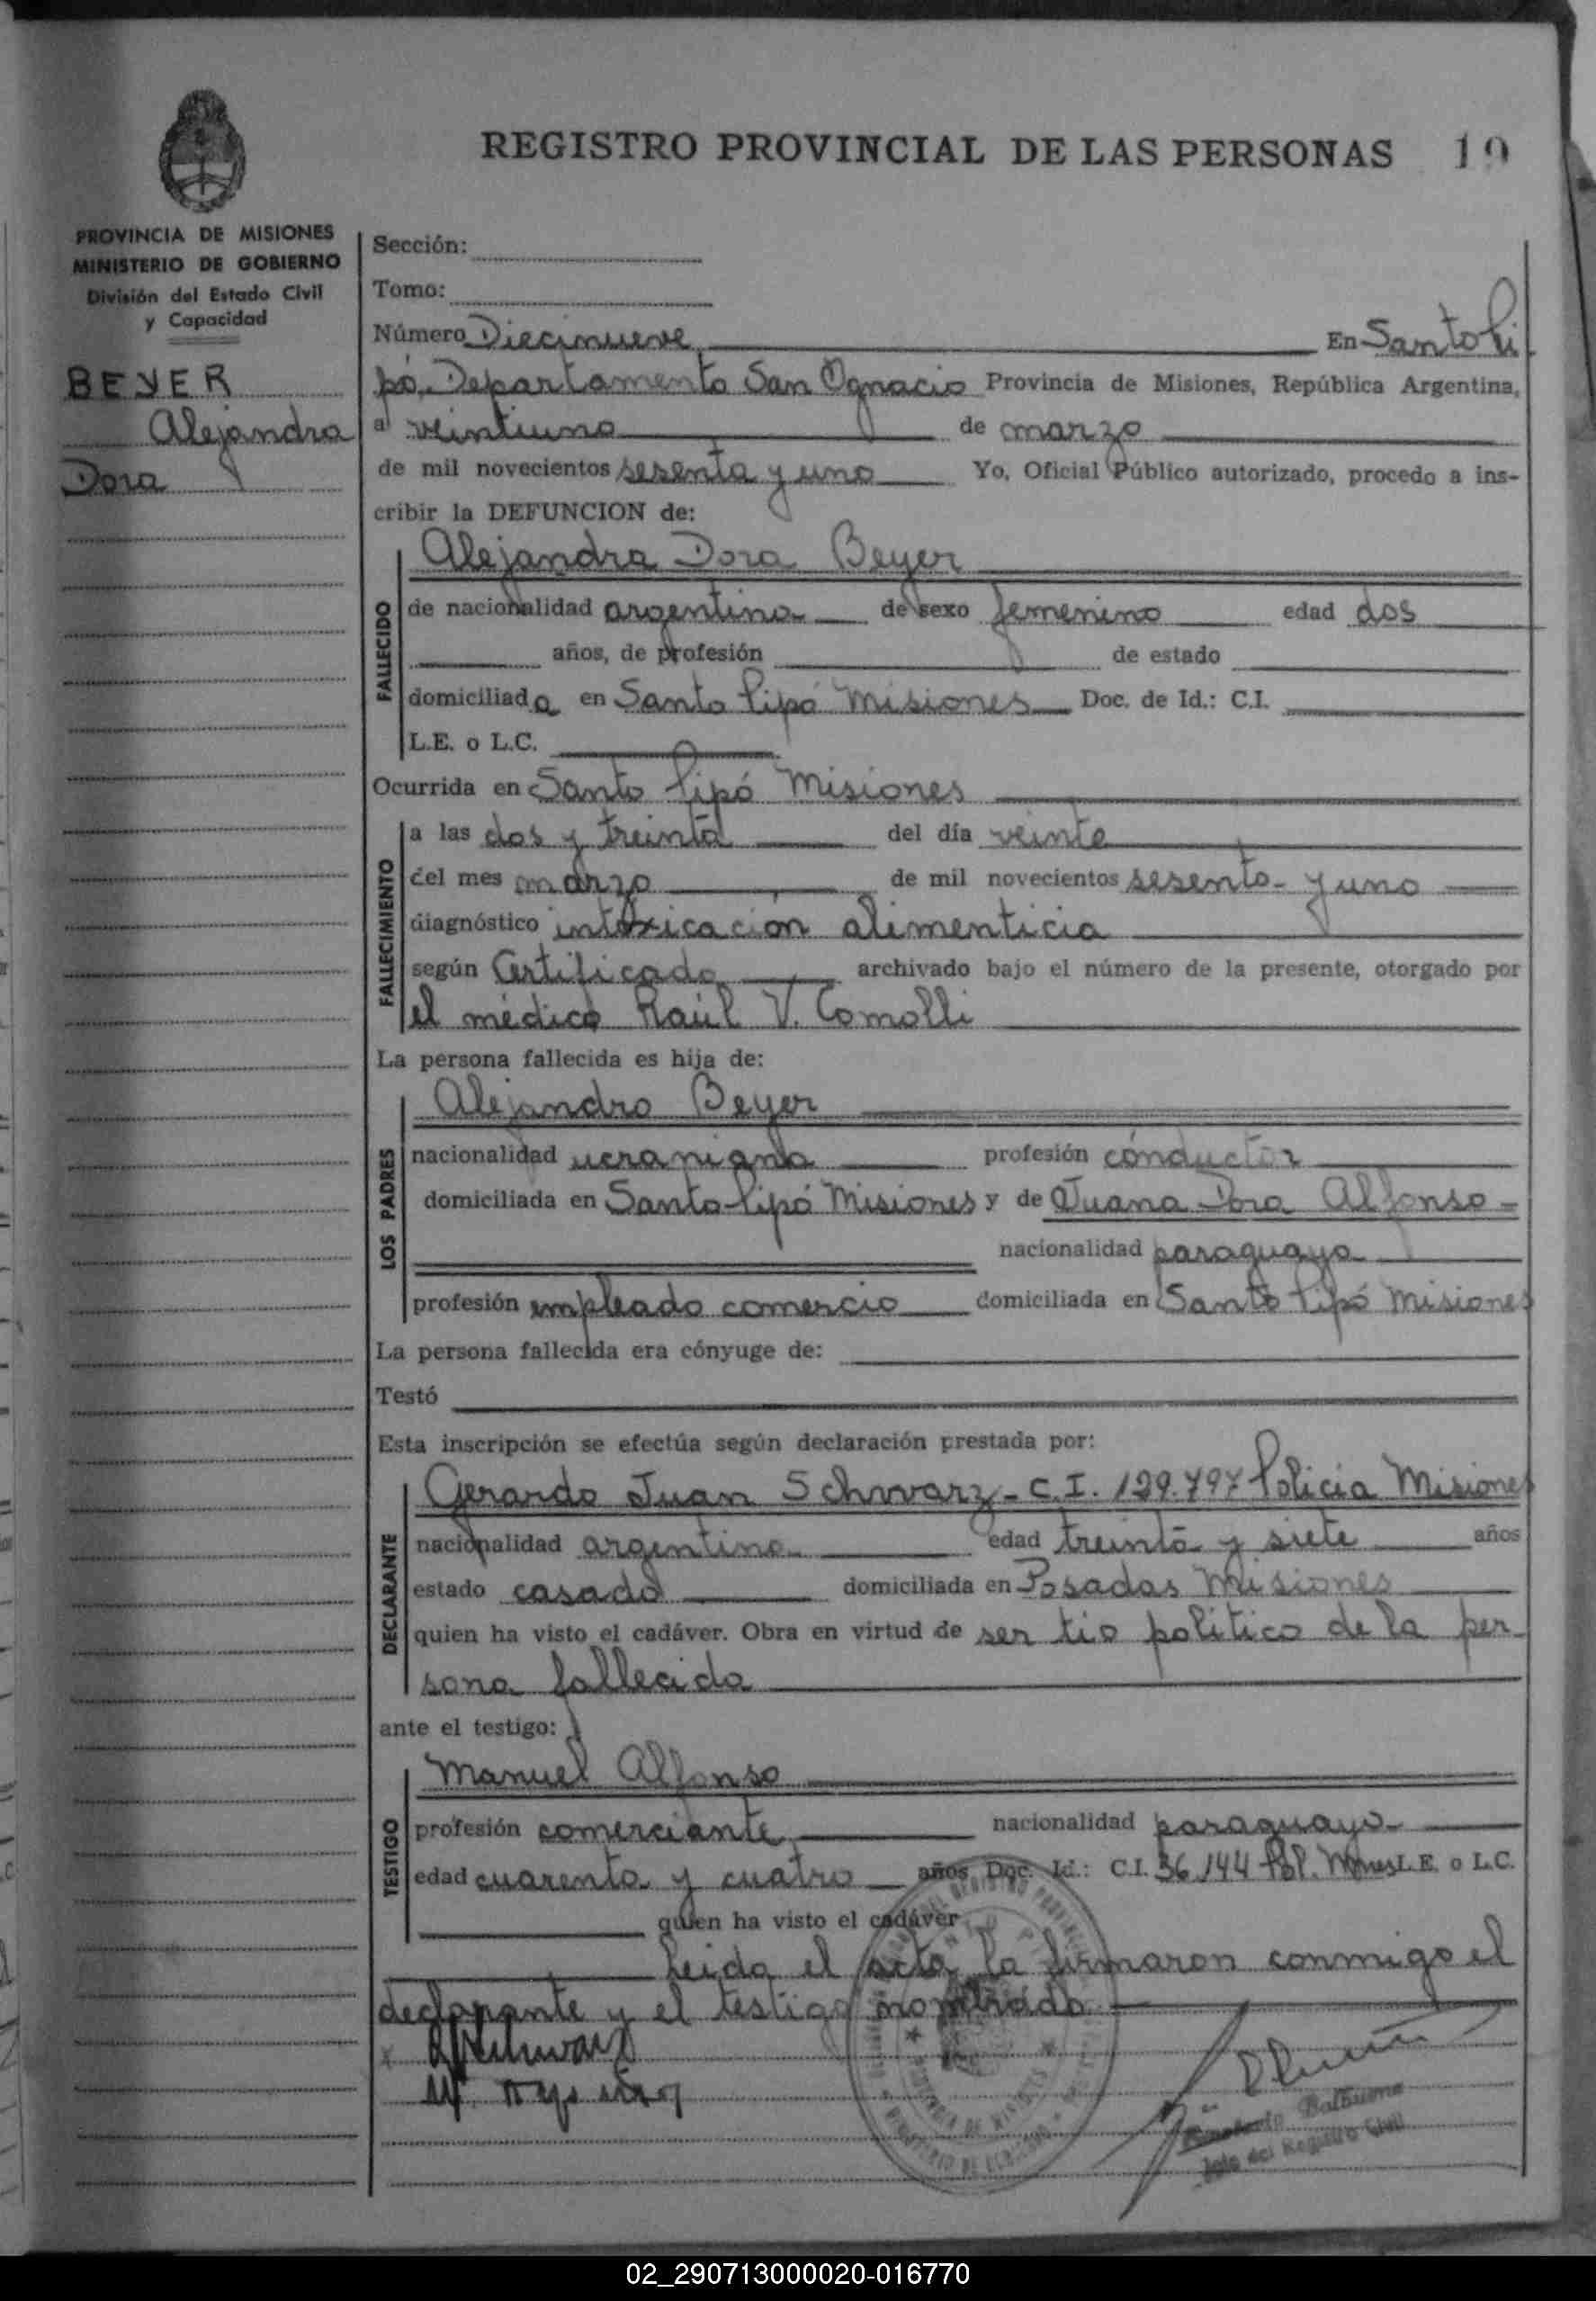 REGISTRO PROVINCIAL DE LAS PERSONAS 19
PROVINCIA DE MISIONES
MINISTERIO DE GOBIERNO
División del Estado Civil
y Capacidad
BEYER
Alejandra
Dora
Sección:
Tomo:
Número Diecinueve En Santo Pi
pó, Departamento San Ignacio Provincia de Misiones, República Argentina,
a veintiuno de marzo
de mil novecientos sesenta y uno Yo, Oficial Público autorizado, procedo a ins-
cribir la DEFUNCION de:
FALLECIDO
Alejandra Dora Beyer
de nacionalidad argentina de sexo femenino edad dos
años, de profesión de estado
domiciliada en Santo Pipó Misiones Doc. de Id.: C.I.
L.E. o L.C.
Ocurrida en Santo Pipó Misiones
FALLECIMIENTO
a las dos y treinta del día veinte
del mes marzo de mil novecientos sesenta y uno
diagnóstico intoxicación alimenticia
según Certificado archivado bajo el número de la presente, otorgado por
el médico Raúl V. Comolli
La persona fallecida es hija de:
LOS PADRES
Alejandro Beyer
nacionalidad ucraniana profesión conductor
domiciliada en Santo Pipó Misiones y de Juana Dora Alfonso
nacionalidad paraguaya
profesión empleado comercio domiciliada en Santo Pipó Misiones
La persona fallecida era cónyuge de:
Testó
Esta inscripción se efectúa según declaración prestada por:
DECLARANTE
Gerardo Juan Schwarz - C.I. 129.797 Policia Misiones
nacionalidad argentina edad treinta y siete años
estado casado domiciliada en Posadas Misiones
quien ha visto el cadáver. Obra en virtud de ser tio politico de la per
sona fallecida
ante el testigo:
TESTIGO
Manuel Alfonso
profesión comerciante nacionalidad paraguayo
edad cuarenta y cuatro años Doc. Id.: C.I. 36.144 Pol. Mnes L.E. o L.C.
quien ha visto el cadáver
Leida el acta la firmaron conmigo el
declarante y el testigo nombrado
Schwarz
Balbuena
Jefe del Registro Civil
02_290713000020-016770